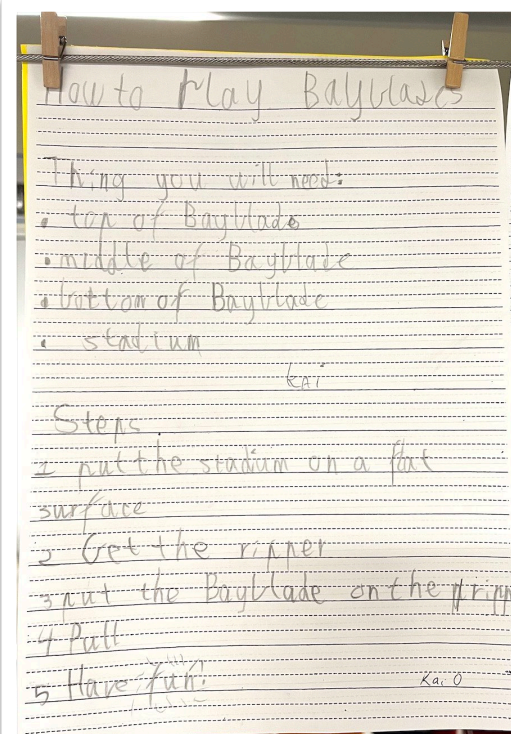 How to Play Bayblades
Thing you will need:
• top of Bayblade
• middle of Bayblade
• bottom of Bayblade
• stadium
kAi
Steps.
1 put the stadium on a flat
surface
2 Get the ripper
3 put the Bayblade on the
4 Pull
5 Have fun!
Kai O